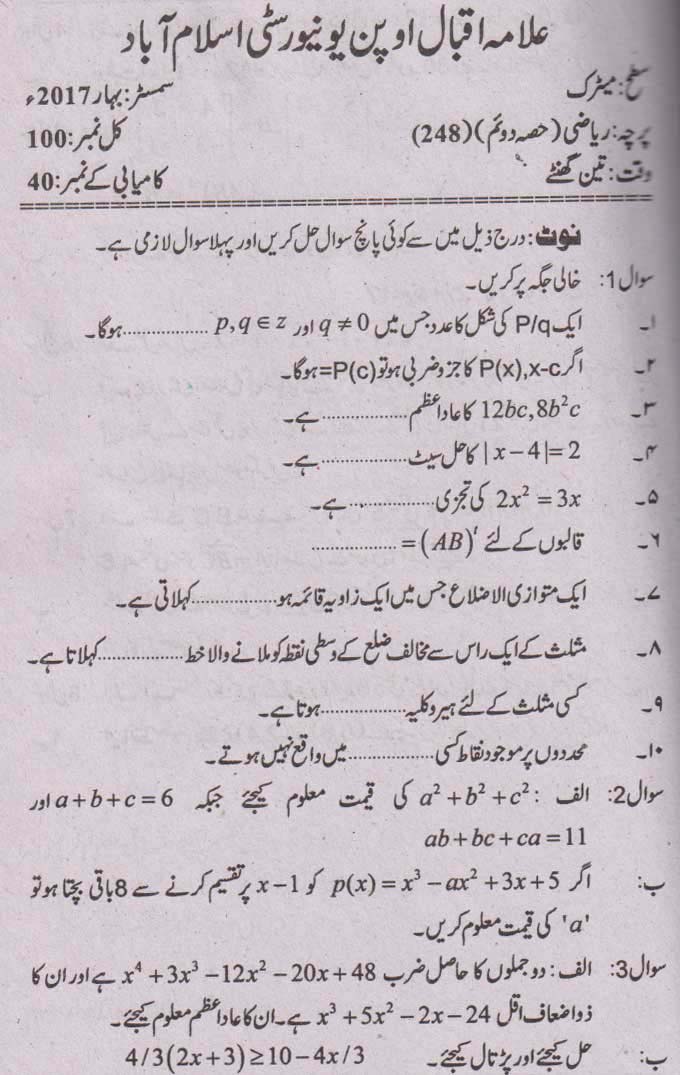 علامہ اقبال اوپن یونیورسٹی اسلام آباد
سطح: میٹرک سمسٹر: بہار 2017ء
پرچہ: ریاضی (حصہ دوئم) (248) کل نمبر: 100
وقت: تین گھنٹے کامیابی کے نمبر: 40
نوٹ: درج ذیل میں سے کوئی پانچ سوال حل کریں اور پہلا سوال لازمی ہے۔
سوال 1: خالی جگہ پر کریں۔
۱۔ ایک P/q کی شکل کا عدد جس میں q ≠ 0 اور p,q ∈ z .................. ہوگا۔
۲۔ اگر P(x),x-c کا جزو ضربی ہو تو P(c)= ہوگا۔
۳۔ 12bc,8b²c کا عاداعظم .................. ہے۔
۴۔ |x-4|=2 کا حل سیٹ .................. ہے۔
۵۔ 2x² = 3x کی تجزی .................. ہے۔
۶۔ قالبوں کے لئے (AB)ᵗ = ..................
۷۔ ایک متوازی الاضلاع جس میں ایک زاویہ قائمہ ہو .................. کہلاتی ہے۔
۸۔ مثلث کے ایک راس سے مخالف ضلع کے وسطی نقطہ کو ملانے والا خط .................. کہلاتا ہے۔
۹۔ کسی مثلث کے لئے ہیرو کلیہ .................. ہوتا ہے۔
۱۰۔ محددوں پر موجود نقاط کسی .................. میں واقع نہیں ہوتے۔
سوال 2: الف: a²+b²+c² کی قیمت معلوم کیجئے جبکہ a+b+c=6 اور
ab+bc+ca=11
ب: اگر p(x)=x³-ax²+3x+5 کو x-1 پر تقسیم کرنے سے 8 باقی بچتا ہو تو
'a' کی قیمت معلوم کریں۔
سوال 3: الف: دو جملوں کا حاصل ضرب x⁴+3x³-12x²-20x+48 ہے اور ان کا
ذواضعاف اقل x³+5x²-2x-24 ہے۔ ان کا عاداعظم معلوم کیجئے۔
ب: حل کیجئے اور پڑتال کیجئے۔ 4/3(2x+3)≥10-4x/3